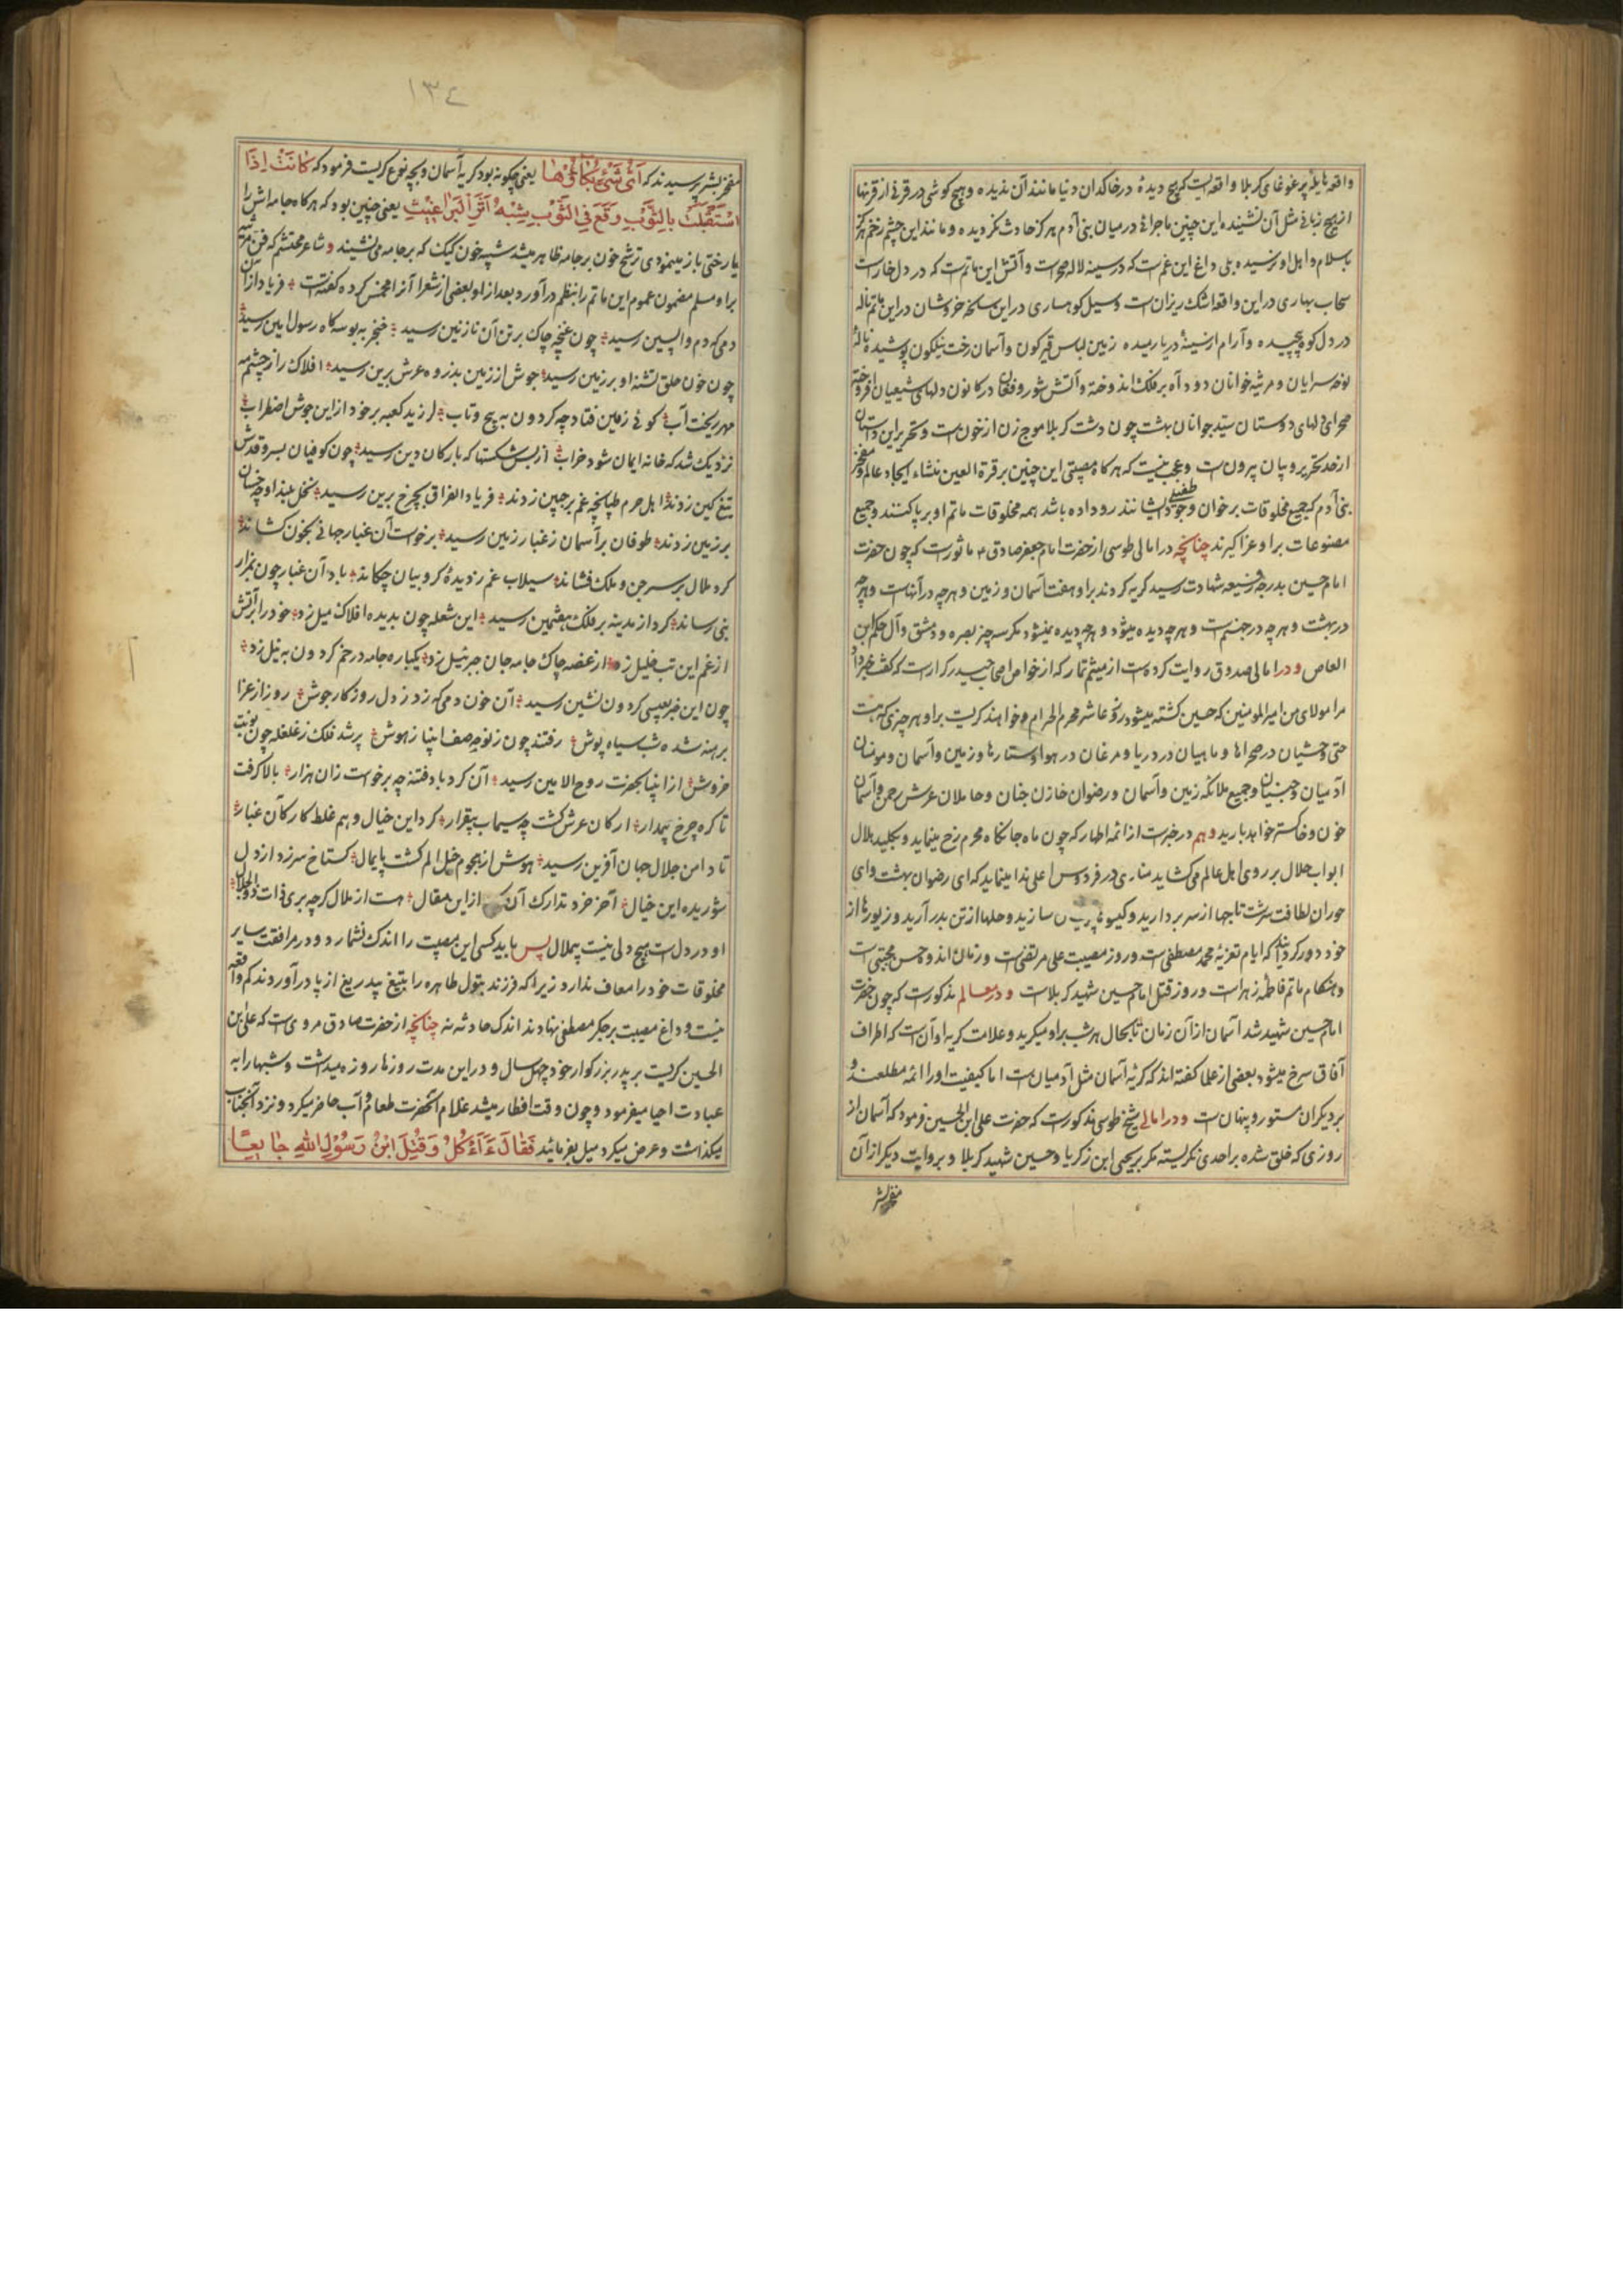 واقعه هایله پر غوغای کربلا واقعه ایست که هیچ دیدهٔ در خاکدان دنیا مانند آن ندیده و هیچ گوشی در قرنی از قرنها
از هیچ زبانی مثل آن نشنیده این چنین ماجرائی در میان بنی آدم هرگز حادث نگردیده و مانند این چشم زخم هرگز
باسلام و اهل او نرسیده بلی داغ این غم است که در سینه لاله صحراست و آتش این ماتمست که در دل خاراست
سحاب بهاری در این واقعه اشک ریزان است و سیل کوهساری در این سانحه خروشان در این ماتم ناله
در دل کوه پیچیده و آرام از سینهٔ دریا رمیده زمین لباس قیرگون و آسمان رخت نیلگون پوشیده نالهٔ
نوحه سرایان و مرثیه خوانان دود آه بر فلک انداخته و آتش شور و فغان در کانون دلهای شیعیان افروخته
صحرای دلهای دوستان سید جوانان بهشت چون دشت کربلا موج زن از خون است و تحریر این داستان
از حد تحریر و بیان بیرون است و عجب نیست که هر گاه مصیبتی این چنین بر قرة العین منشاء ایجاد عالم و مفخر
بنی آدم که جمیع مخلوقات بر خوان وجود طفیلی ایشانند رو داده باشد همه مخلوقات ماتم او بر پا کنند و جمیع
مصنوعات برای او عزا گیرند چنانچه در امالی طوسی از حضرت امام جعفر صادق ع ماثور است که چون حضرت
امام حسین بدرجه رفیعه شهادت رسید گریه کردند بر او هفت آسمان و زمین و هر چه در آنهاست و هر چه
در بهشت و هر چه در جهنم است و هر چه دیده میشود و هر چه دیده نمیشود مگر سه چیز بصره و دمشق و آل حکم ابن
العاص و در امالی صدوق روایت کرده است از میثم تمار که از خواص اصحاب حیدر کرار است که گفت خبر داد
مرا مولای من امیر المومنین که حسین کشته میشود در روز عاشر محرم الحرام و خواهند گریست بر او هر چیزی که هست
حتی وحشیان در صحراها و ماهیان در دریا و مرغان در هوا و ستارها و زمین و آسمان و مومنان
آدمیان و جنیان و جمیع ملائکه زمین و آسمان و رضوان خازن جنان و حاملان عرش رحمن و آسمان
خون و خاکستر خواهد بارید و هم در خبرست از ائمه اطهار که چون ماه جانکاه محرم رخ مینماید و بکلید هلال
ابواب ملال بر روی اهل عالم می گشاید منادی در فردوس اعلی ندا مینماید که ای رضوان بهشت و ای
حوران لطافت سرشت تاجها از سر بردارید و گیسوها پریشان سازید و حلها از تن بدر آرید و زیورها از
خود دور گردانید که ایام تعزیهٔ محمد مصطفی است و روز مصیبت علی مرتضی است و زمان اندوه حسن مجتبی است
و هنگام ماتم فاطمه زهراست و روز قتل امام حسین شهید کربلاست و در معالم مذکورست که چون حضرت
امام حسین شهید شد آسمان از آن زمان تا بحال هر شب بر او میگرید و علامت گریه او آن است که اطراف
آفاق سرخ میشود بعضی از علما گفته اند که گریهٔ آسمان مثل آدمیان است اما کیفیت او را ائمه مطلعند و
بر دیگران مستور و پنهان است و در امالی شیخ طوسی مذکورست که حضرت علی ابن الحسین فرمود که آسمان از
روزی که خلق شده بر احدی نگریسته مگر بر یحیی ابن زکریا و حسین شهید کربلا و بروایت دیگر از آن
مفخر بشر
۱۳۴
مفخر بشر پرسیدند که ایُّ شَیْءٍ بُکَاؤُهَا یعنی چگونه بود گریه آسمان و بچه نوع گریست فرمود که کَانَتْ اِذَا
اسْتَقْبَلَتْ بِالثَّوْبِ وَقَعَ فِی الثَّوْبِ شِبْهُ اَثَرِ الْبَرَاغِیثِ یعنی چنین بود که هر گاه جامه اش را
یا رختی باز مینمودی ترشح خون بر جامه ظاهر میشد شبیه خون کیک که بر جامه می نشیند و شاعر محتشم که فن مرثیه
بر او مسلم مضمون عموم این ماتم را بنظم درآورد بعد از او بعضی از شعرا آنرا مخمس کرده گفته است فریاد از آن
دمی که دم واپسین رسید چون غنچه چاک بر تن آن نازنین رسید خنجر به بوسه گاه رسول امین رسید
چون خون حلق تشنه او بر زمین رسید جوش از زمین بذروه عرش برین رسید افلاک را ز چشمه
مهر ریخت آب گوئی زمین فتاد چه گردون به پیچ و تاب لرزید کعبه بر خود از این جوش اضطراب
نزدیک شد که خانه ایمان شود خراب از بس شکستها که بارکان دین رسید چون کوفیان بسرو قدش
تیغ کین زدند اهل حرم طپانچه غم بر جبین زدند فریاد الفراق بچرخ برین رسید نخل بلند او چه خسان
بر زمین زدند طوفان بر آسمان ز غبار زمین رسید برخواست آن غبار جهانی بخون کشاند
گرد ملال بر سر جن و ملک فشاند سیلاب غم ز دیدهٔ کروبیان چکاند باد آن غبار چون بمزار
نبی رساند گرد از مدینه بر فلک هفتمین رسید این شعله چون بدیده افلاک میل زد خود را بر آتش
از غم این تب خلیل زد از غصه چاک جامه جان جبرئیل زد یکباره جامه در خم گردون به نیل زد
چون این خبر بعیسی گردون نشین رسید آن خون دمی که زد ز دل روزگار جوش روز از عزا
برهنه شد شب سیاه پوش رفتند چون ز نوحه صف انبیا ز هوش پر شد فلک ز غلغله چون نوبت
خروش از انبیا بحضرت روح الامین رسید آن گرد باد فتنه چه برخواست زان هزار بالا گرفت
تا کره چرخ بیمدار ارکان عرش گشت چه سیماب بیقرار کرد این خیال وهم غلط کار کان غبار
تا دامن جلال جهان آفرین رسید هوش از هجوم خیل الم گشت پایمال گستاخ سر زد از دل
شوریده این خیال آخر خرد تدارک آن از این مقال هست از ملال گرچه بری ذات ذوالجلال
او در دل است هیچ دلی نیست بیملال پس باید کسی این مصیبت را اندک نشمارد و در مرافقت سایر
مخلوقات خود را معاف ندارد زیرا که فرزند بتول طاهره را بتیغ بیدریغ از پا درآوردند کم واقعه
نیست و داغ مصیبت بر جگر مصطفی نهادند اندک حادثه نه چنانچه از حضرت صادق مروی است که علی بن
الحسین گریست بر پدر بزرگوار خود چهل سال و در این مدت روزها روزه میداشت و شبها را به
عبادت احیا میفرمود و چون وقت افطار میشد غلام آنحضرت طعام و آب حاضر میکرد و نزد آنجناب
میگذاشت و عرض میکرد میل بفرمائید فَقَالَ ءَاَکُلُ وَ قُتِلَ ابْنُ رَسُوْلِ اللهِ جَایِعًا